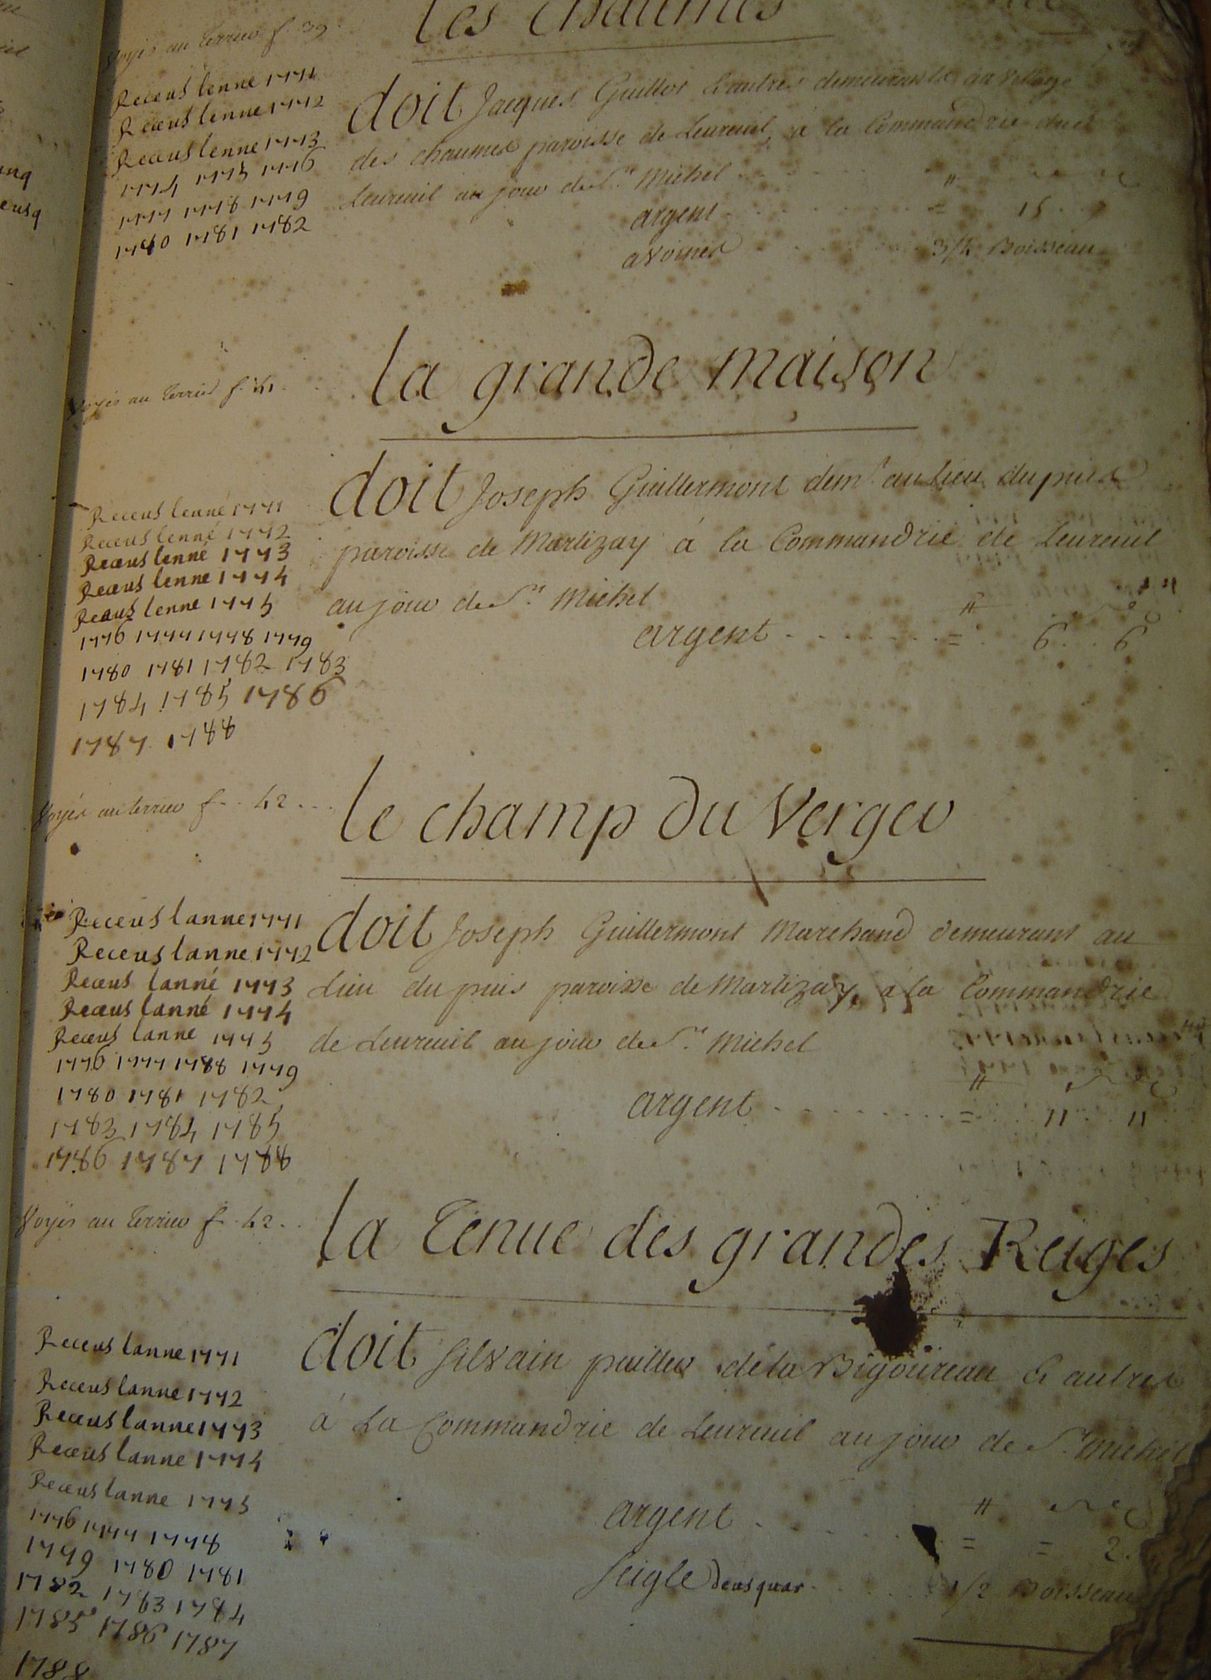 les chaumes
Voyés au terrier f. 39.
Receus lenne 1771
Receus lenne 1772
Receus lenne 1773
1774 1775 1776
1777 1778 1779
1780 1781 1782
doit Jacques Guillot & autres demeurants au village
des chaumes paroisse de Leureuil, a la Commandrie dud.
Leureuil au jour de St. Michel
argent = 15
avoines 3/4 Boisseau
Voyés au terrier f. 41.
la grande maison
Receus lenné 1771
Receus lenné 1772
Receus lenne 1773
Receus lenne 1774
Receus lenne 1775
1776 1777 1778 1779
1780 1781 1782 1783
1784 1785 1786
1787 1788
doit Joseph Guillermont demt. au lieu du puis
paroisse de Martizay á la Commandrie de Leureuil
au jour de St. Michel
argent = 6 6
Voyés au terrier f. 42
le champ du Verger
Receus lanne 1771
Receus lanne 1772
Receus lanné 1773
Receus lanné 1774
Receus lanne 1775
1776 1777 1788 1779
1780 1781 1782
1783 1784 1785
1786 1787 1788
doit Joseph Guillermont Marchand demeurant au
Lieu du puis paroisse de Martizay, á la Commandrie
de Leureuil au jour de St. Michel
argent = 11 11
Voyés au terrier f. 42.
la Tenue des grandes Reiges
Receus lanne 1771
Receus lanne 1772
Receus lanne 1773
Receus lanne 1774
Receus lanne 1775
1776 1777 1778
1779 1780 1781
1782 1783 1784
1785 1786 1787
1788
doit Silvain paillier de la Bigoureau & autres
á La Commandrie de Leureuil au jour de St. Michel
argent = = 2.
Seigle deus quar 1/2 Boisseau